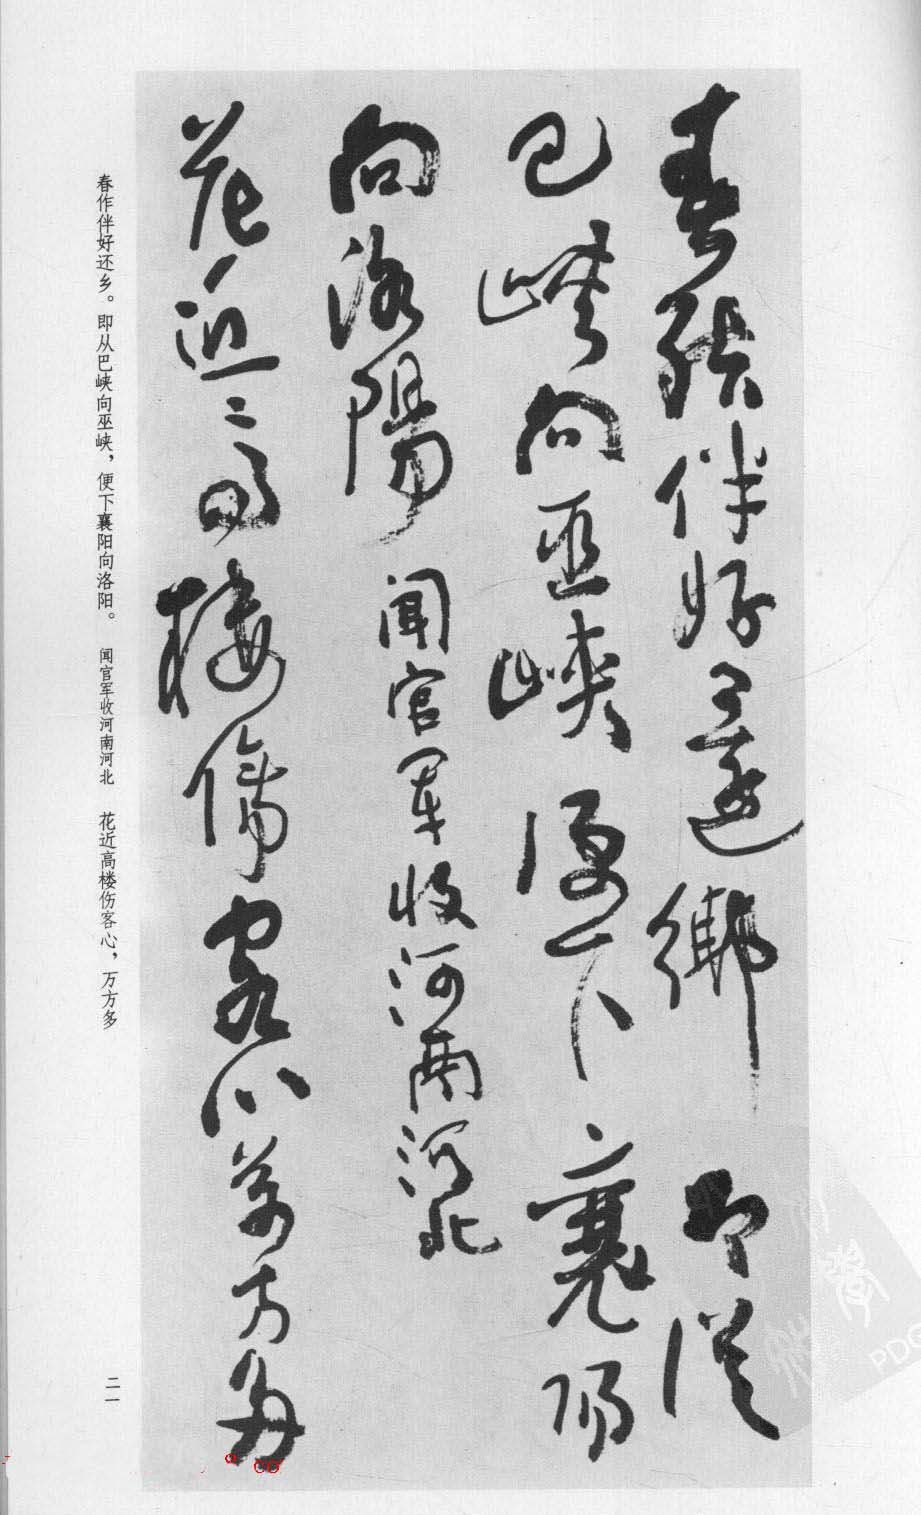 春作伴好還鄉即從
巴峽向巫峽便下襄陽
向洛陽 聞官軍收河南河北
花近高樓傷客心萬方多
春作伴好还乡。即从巴峡向巫峡，便下襄阳向洛阳。 闻官军收河南河北 花近高楼伤客心，万方多
二一
PDG